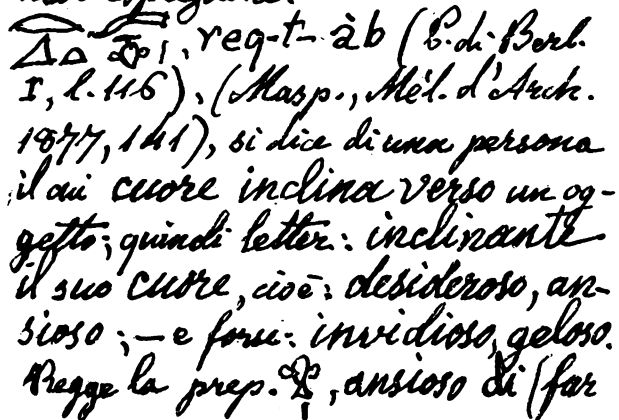 req-t-àb (P. di Berl.
I, l. 116), (Masp., Mél. d'Arch.
1877, 141), si dice di una persona
il cui cuore inclina verso un og-
getto; quindi letter: inclinante
il suo cuore, cioè: desideroso, an-
sioso; — e forse: invidioso, geloso.
Regge la prep. , ansioso di (far